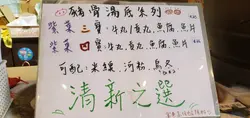 豬骨湯底系列
紫菜三寶:牛丸/貢丸、魚腐、魚片
紫菜四寶:牛丸、貢丸、魚腐、魚片
可配:米線、河粉、烏冬
清新之選